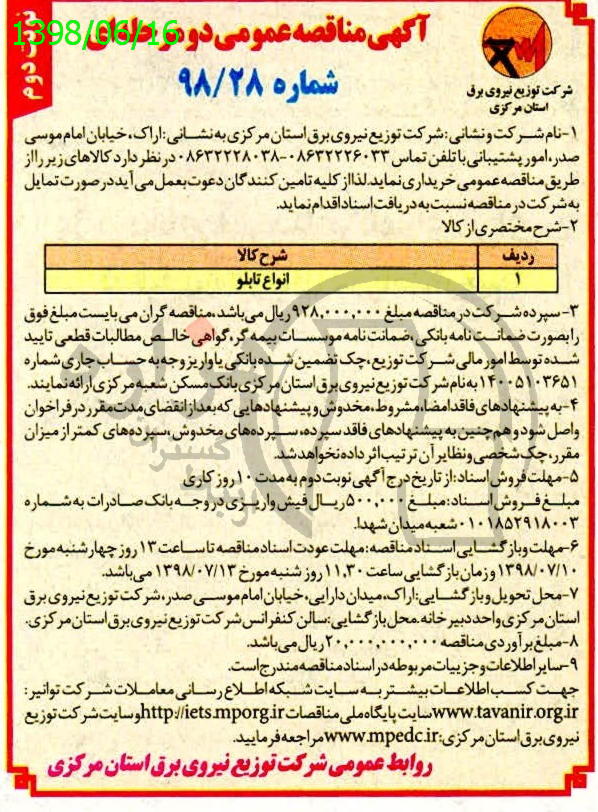 1398/06/16
نوبت دوم
آگهی مناقصه عمومی دو مرحله‌ای
شماره ۹۸/۲۸
شرکت توزیع نیروی برق
استان مرکزی
۱-نام شرکت و نشانی: شرکت توزیع نیروی برق استان مرکزی به نشانی: اراک، خیابان امام موسی
صدر، امور پشتیبانی با تلفن تماس ۰۸۶۳۲۲۲۶۰۳۳-۰۸۶۳۲۲۲۸۰۳۸ در نظر دارد کالاهای زیر را از
طریق مناقصه عمومی خریداری نماید. لذا از کلیه تامین کنندگان دعوت بعمل می آید در صورت تمایل
به شرکت در مناقصه نسبت به دریافت اسناد اقدام نماید.
۲-شرح مختصری از کالا
ردیف شرح کالا
۱ انواع تابلو
۳- سپرده شرکت در مناقصه مبلغ ۹۲۸,۰۰۰,۰۰۰ ریال می باشد، مناقصه گران می بایست مبلغ فوق
را بصورت ضمانت نامه بانکی، ضمانت نامه موسسات بیمه گر، گواهی خالص مطالبات قطعی تایید
شده توسط امور مالی شرکت توزیع، چک تضمین شده بانکی یا واریز وجه به حساب جاری شماره
۱۴۰۰۵۱۰۳۶۵۱ به نام شرکت توزیع نیروی برق استان مرکزی بانک مسکن شعبه مرکزی ارائه نمایند.
۴-به پیشنهادهای فاقد امضا، مشروط، مخدوش و پیشنهادهایی که بعد از انقضای مدت مقرر در فراخوان
واصل شود و هم چنین به پیشنهادهای فاقد سپرده، سپرده های مخدوش، سپرده های کمتر از میزان
مقرر، چک شخصی و نظایر آن ترتیب اثر داده نخواهد شد.
۵-مهلت فروش اسناد: از تاریخ درج آگهی نوبت دوم به مدت ۱۰ روز کاری
مبلغ فروش اسناد: مبلغ ۵۰۰,۰۰۰ ریال فیش واریزی در وجه بانک صادرات به شماره
۰۱۰۱۸۵۲۹۱۸۰۰۳ شعبه میدان شهدا.
۶-مهلت و بازگشایی اسناد مناقصه: مهلت عودت اسناد مناقصه تا ساعت ۱۳ روز چهارشنبه مورخ
۱۳۹۸/۰۷/۱۰ و زمان بازگشایی ساعت ۱۱,۳۰ روز شنبه مورخ ۱۳۹۸/۰۷/۱۳ می باشد.
۷-محل تحویل و بازگشایی: اراک، میدان دارایی، خیابان امام موسی صدر، شرکت توزیع نیروی برق
استان مرکزی واحد دبیرخانه. محل بازگشایی: سالن کنفرانس شرکت توزیع نیروی برق استان مرکزی.
۸-مبلغ برآوردی مناقصه ۲۰,۰۰۰,۰۰۰,۰۰۰ ریال می باشد.
۹-سایر اطلاعات و جزییات مربوطه در اسناد مناقصه مندرج است.
جهت کسب اطلاعات بیشتر به سایت شبکه اطلاع رسانی معاملات شرکت توانیر:
www.tavanir.org.ir سایت پایگاه ملی مناقصات http://iets.mporg.ir و سایت شرکت توزیع
نیروی برق استان مرکزی: www.mpedc.ir مراجعه فرمایید.
روابط عمومی شرکت توزیع نیروی برق استان مرکزی